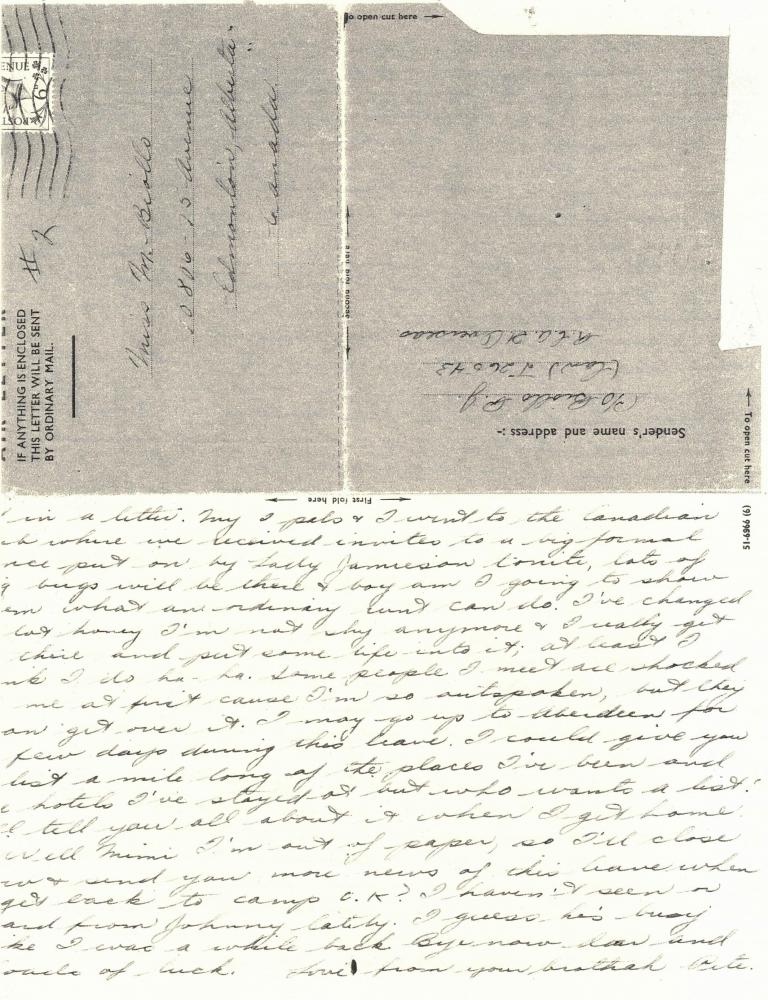 To open cut here
ENUE
POST
6
# 2
IF ANYTHING IS ENCLOSED
THIS LETTER WILL BE SENT
BY ORDINARY MAIL.
Miss M. Biollo
10816 - 75 Avenue
Edmonton, Alberta
Canada.
Second fold here
Sender's name and address :-
F/O Biollo P.J.
(Can) J 26043
R.C.A.F. Overseas
To open cut here
First fold here
51-6966 (6)
in a letter. My 2 pals & I went to the Canadian
b where we received invites to a big formal
nce put on by Lady Jamieson tonite, lots of
g bugs will be there & boy am I going to show
em what an ordinary can do. I've changed
lot honey I'm not shy anymore & I really get
there and put some life into it, at least I
nk I do ha-ha. Some people I meet are shocked
me at first cause I'm so outspoken, but they
on get over it. I may go up to Aberdeen for
few days during this leave. I could give you
list a mile long of the places I've been and
e hotels I've stayed at but who wants a list!
l tell you all about it when I get home.
Well Mimi I'm out of paper, so I'll close
w & send you more news of this leave when
get back to camp O.K? I haven't seen or
ard from Johnny lately. I guess he's busy
ke I was a while back Bye now dear and
oads of luck. Love from your brothah Pete.